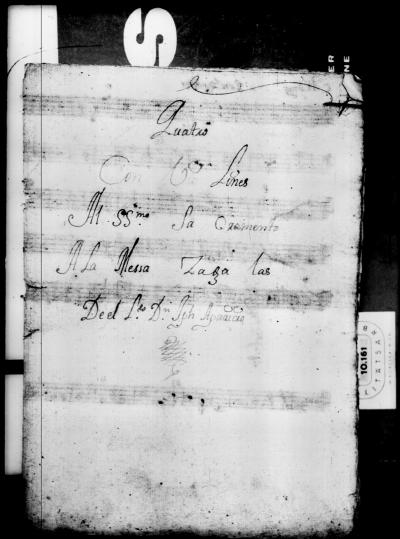 Quatro
Con Vs. Lines
Al SSmo. Sa Cramento
A La Messa Zaga las
De el Lo. Dn. Jph Aparicio
S
ER
NE
10.161